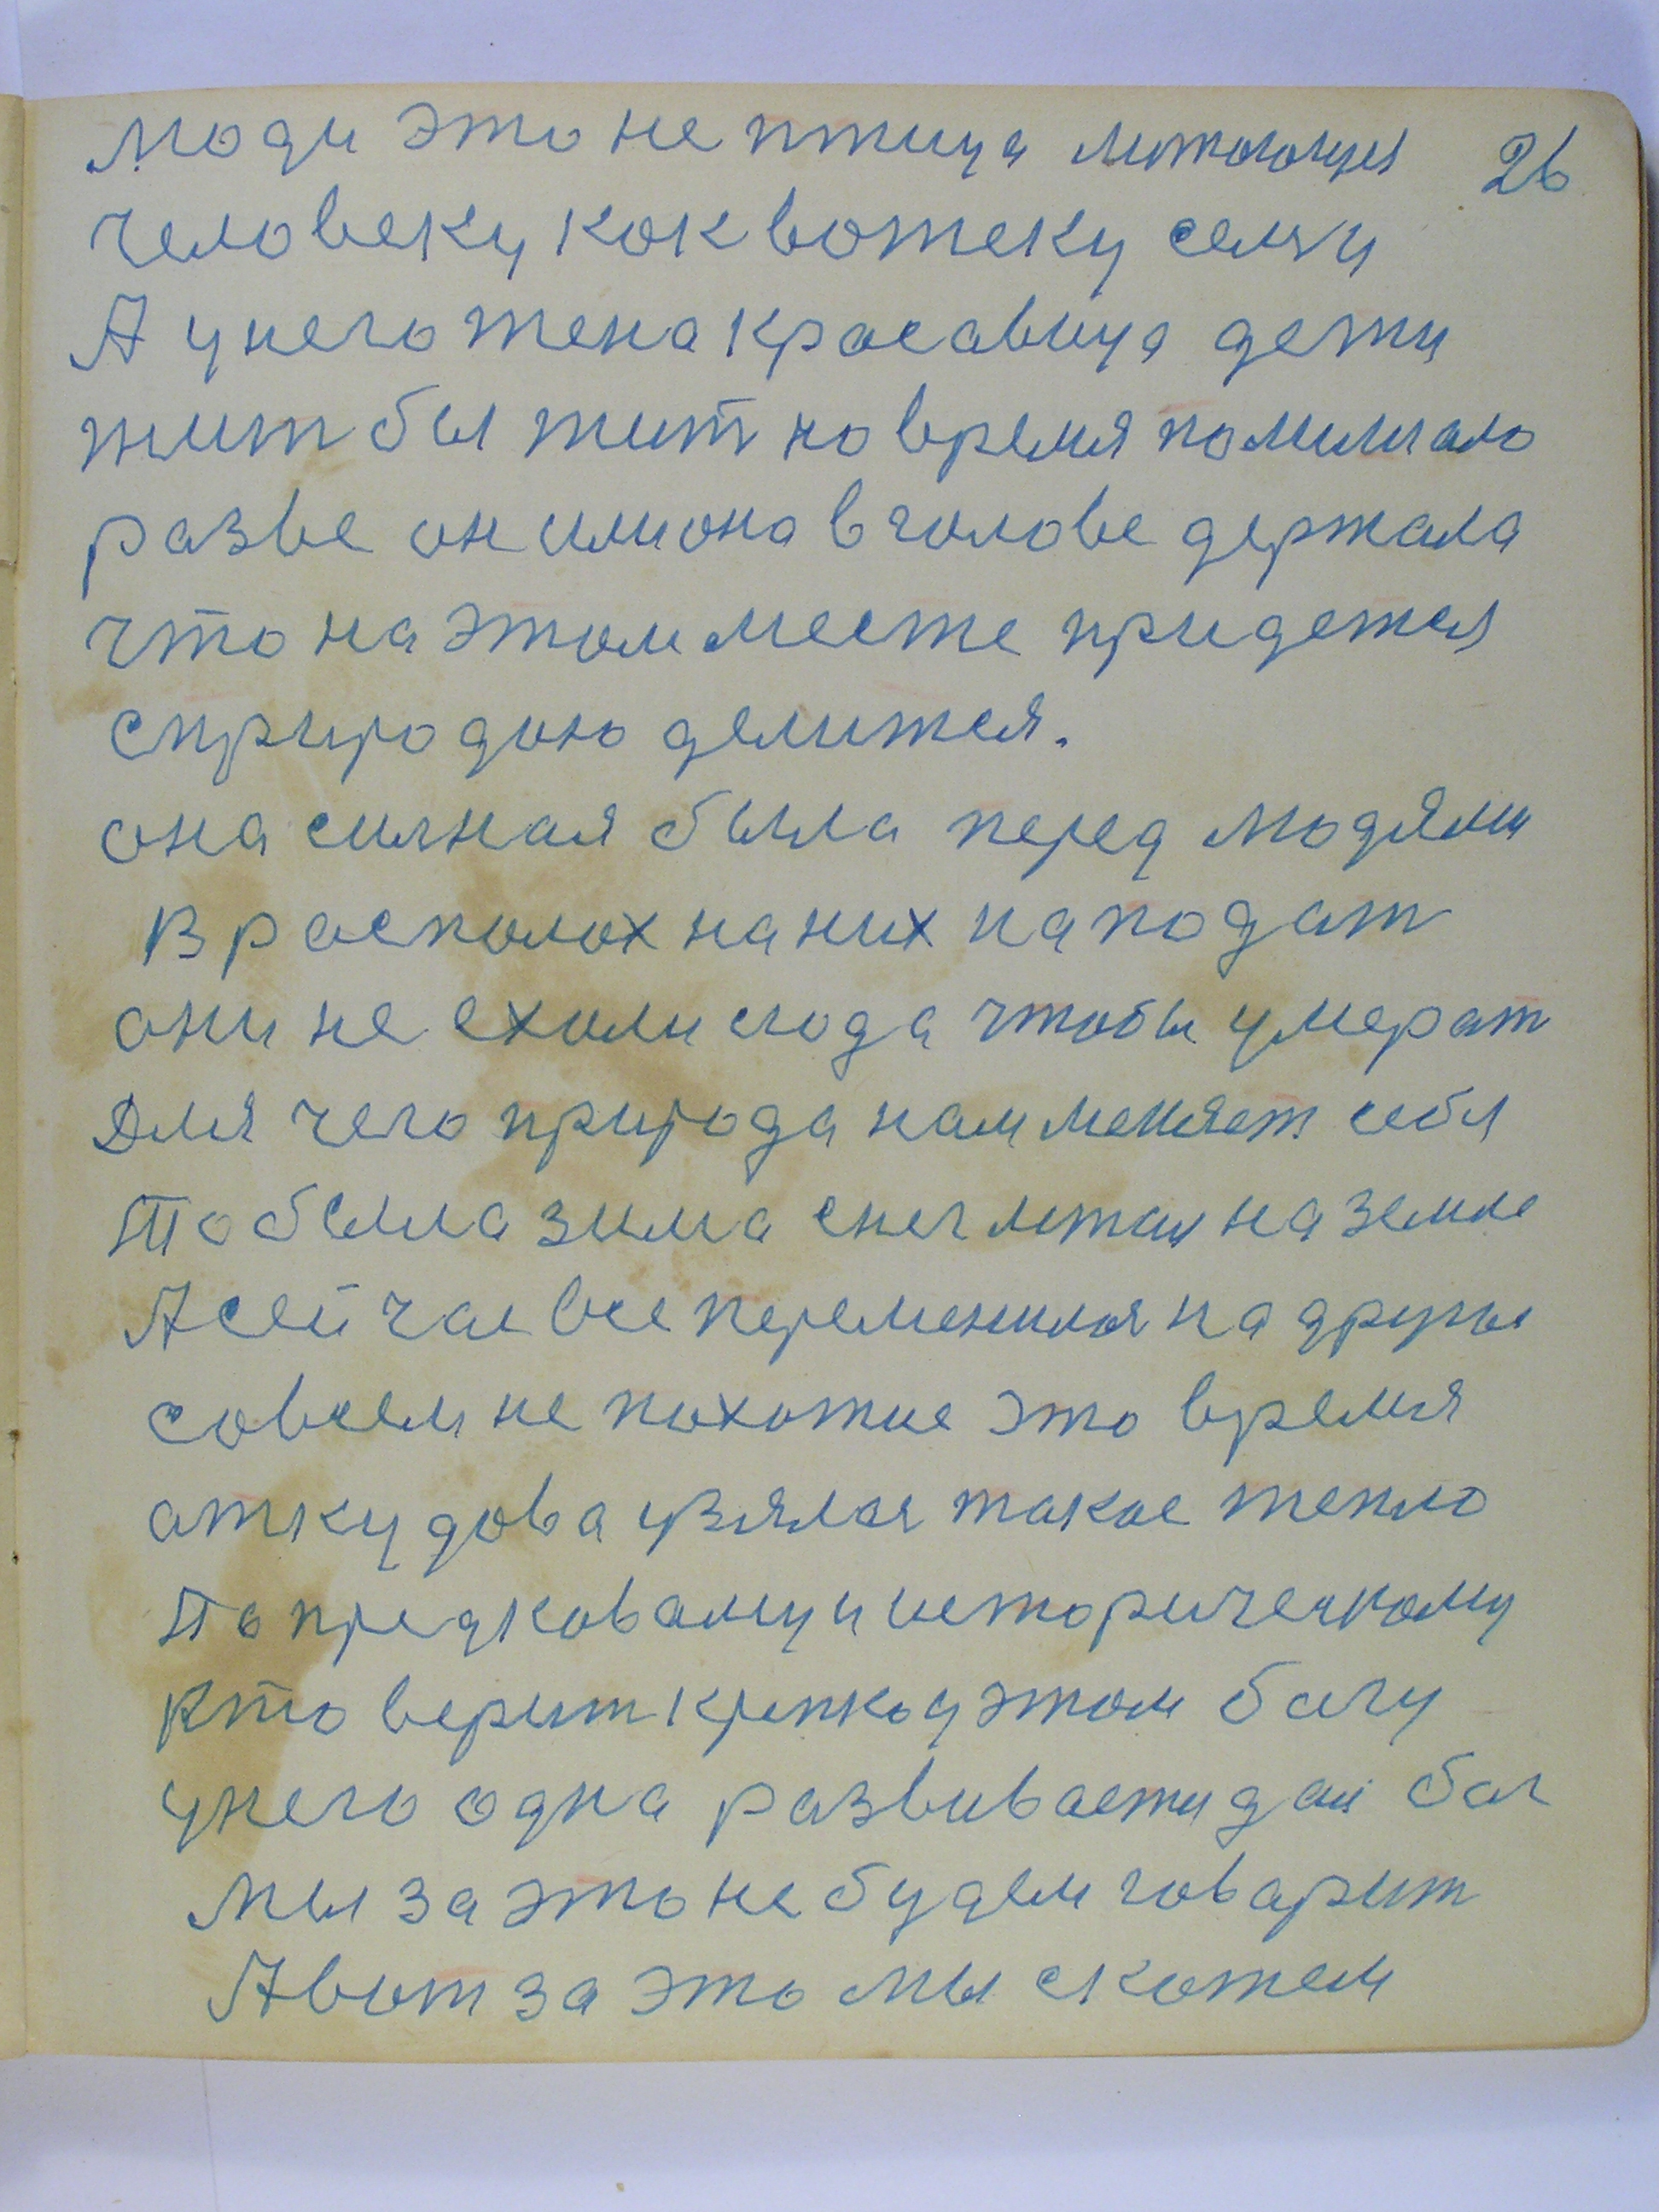 люди это не птица литающия 26
человеку как вотеку селяги
А у него жена красавица дети
жит бы жит но время помишало
разве он или она в голове держала
что на этом месте придется
сприродою делится.
она силная была перед людями
В располох на них нападат
они не ехали сюда чтобы умерат
Для чего природа нам меняет себя
То была зима снег литал на земле
А сейчас все переменилося на другое
совсем не похожие это время
аткудова узялося такое тепло
По предковаму и историческому
Кто верит крепко у этом богу
у него одна развивается дай бог
мы за это не будем говарит
А вот за это мы скажем